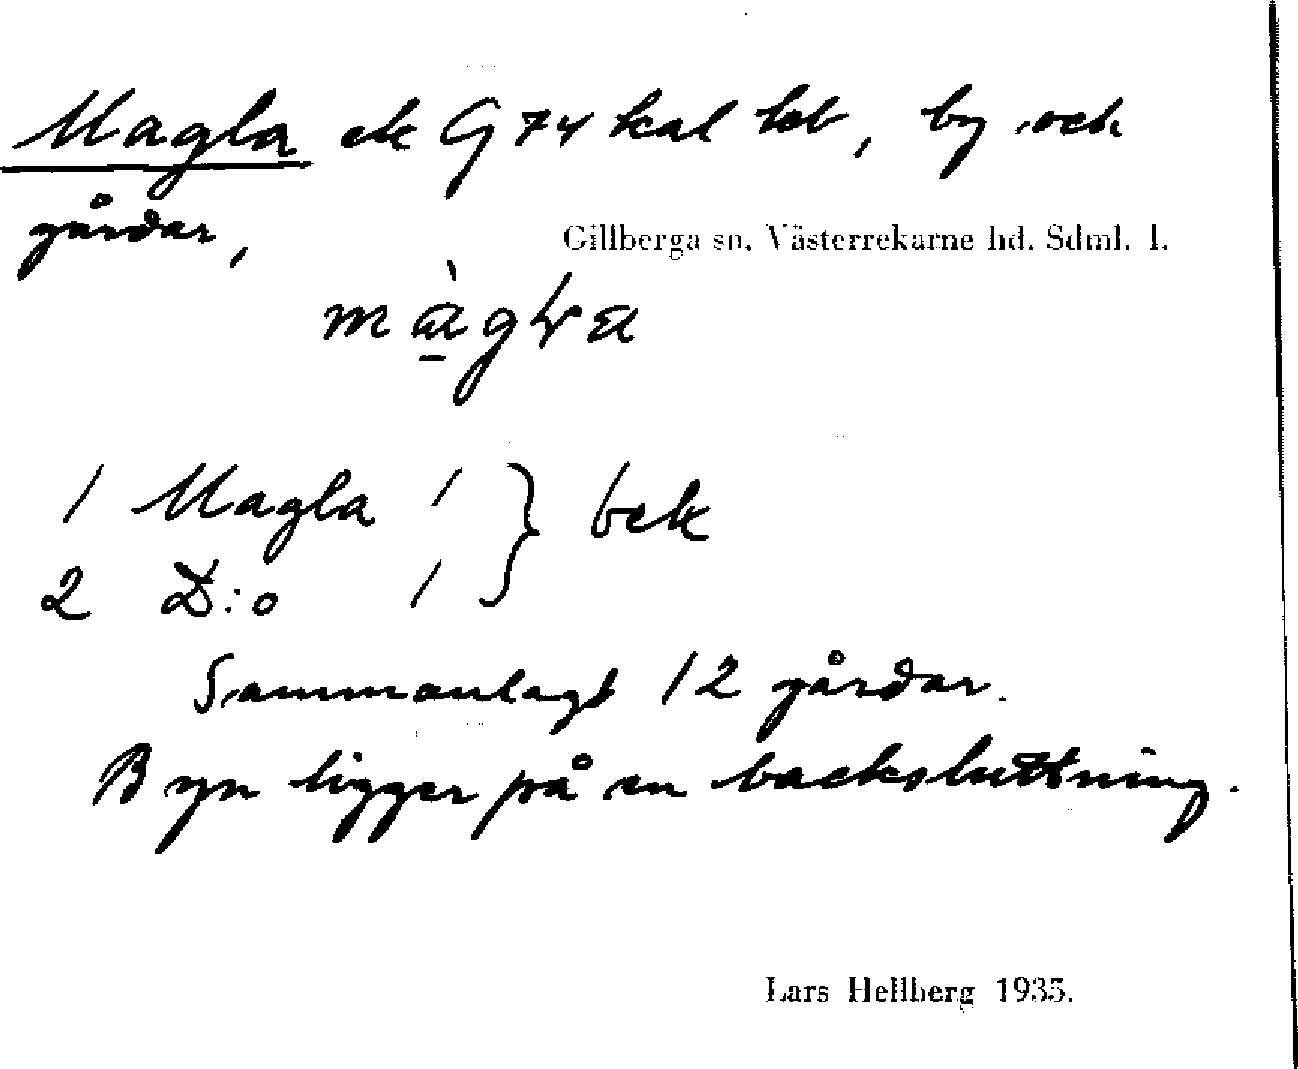 Magla ek G 74 kal bd, by och
gårdar,
Gillberga sn. Västerrekarne hd. Sdml. l.
1 Magla 1 } bek
2 D:o 1
Sammanlagt 12 gårdar.
Byn ligger på en backsluttning.
Lars Hellberg 1935.